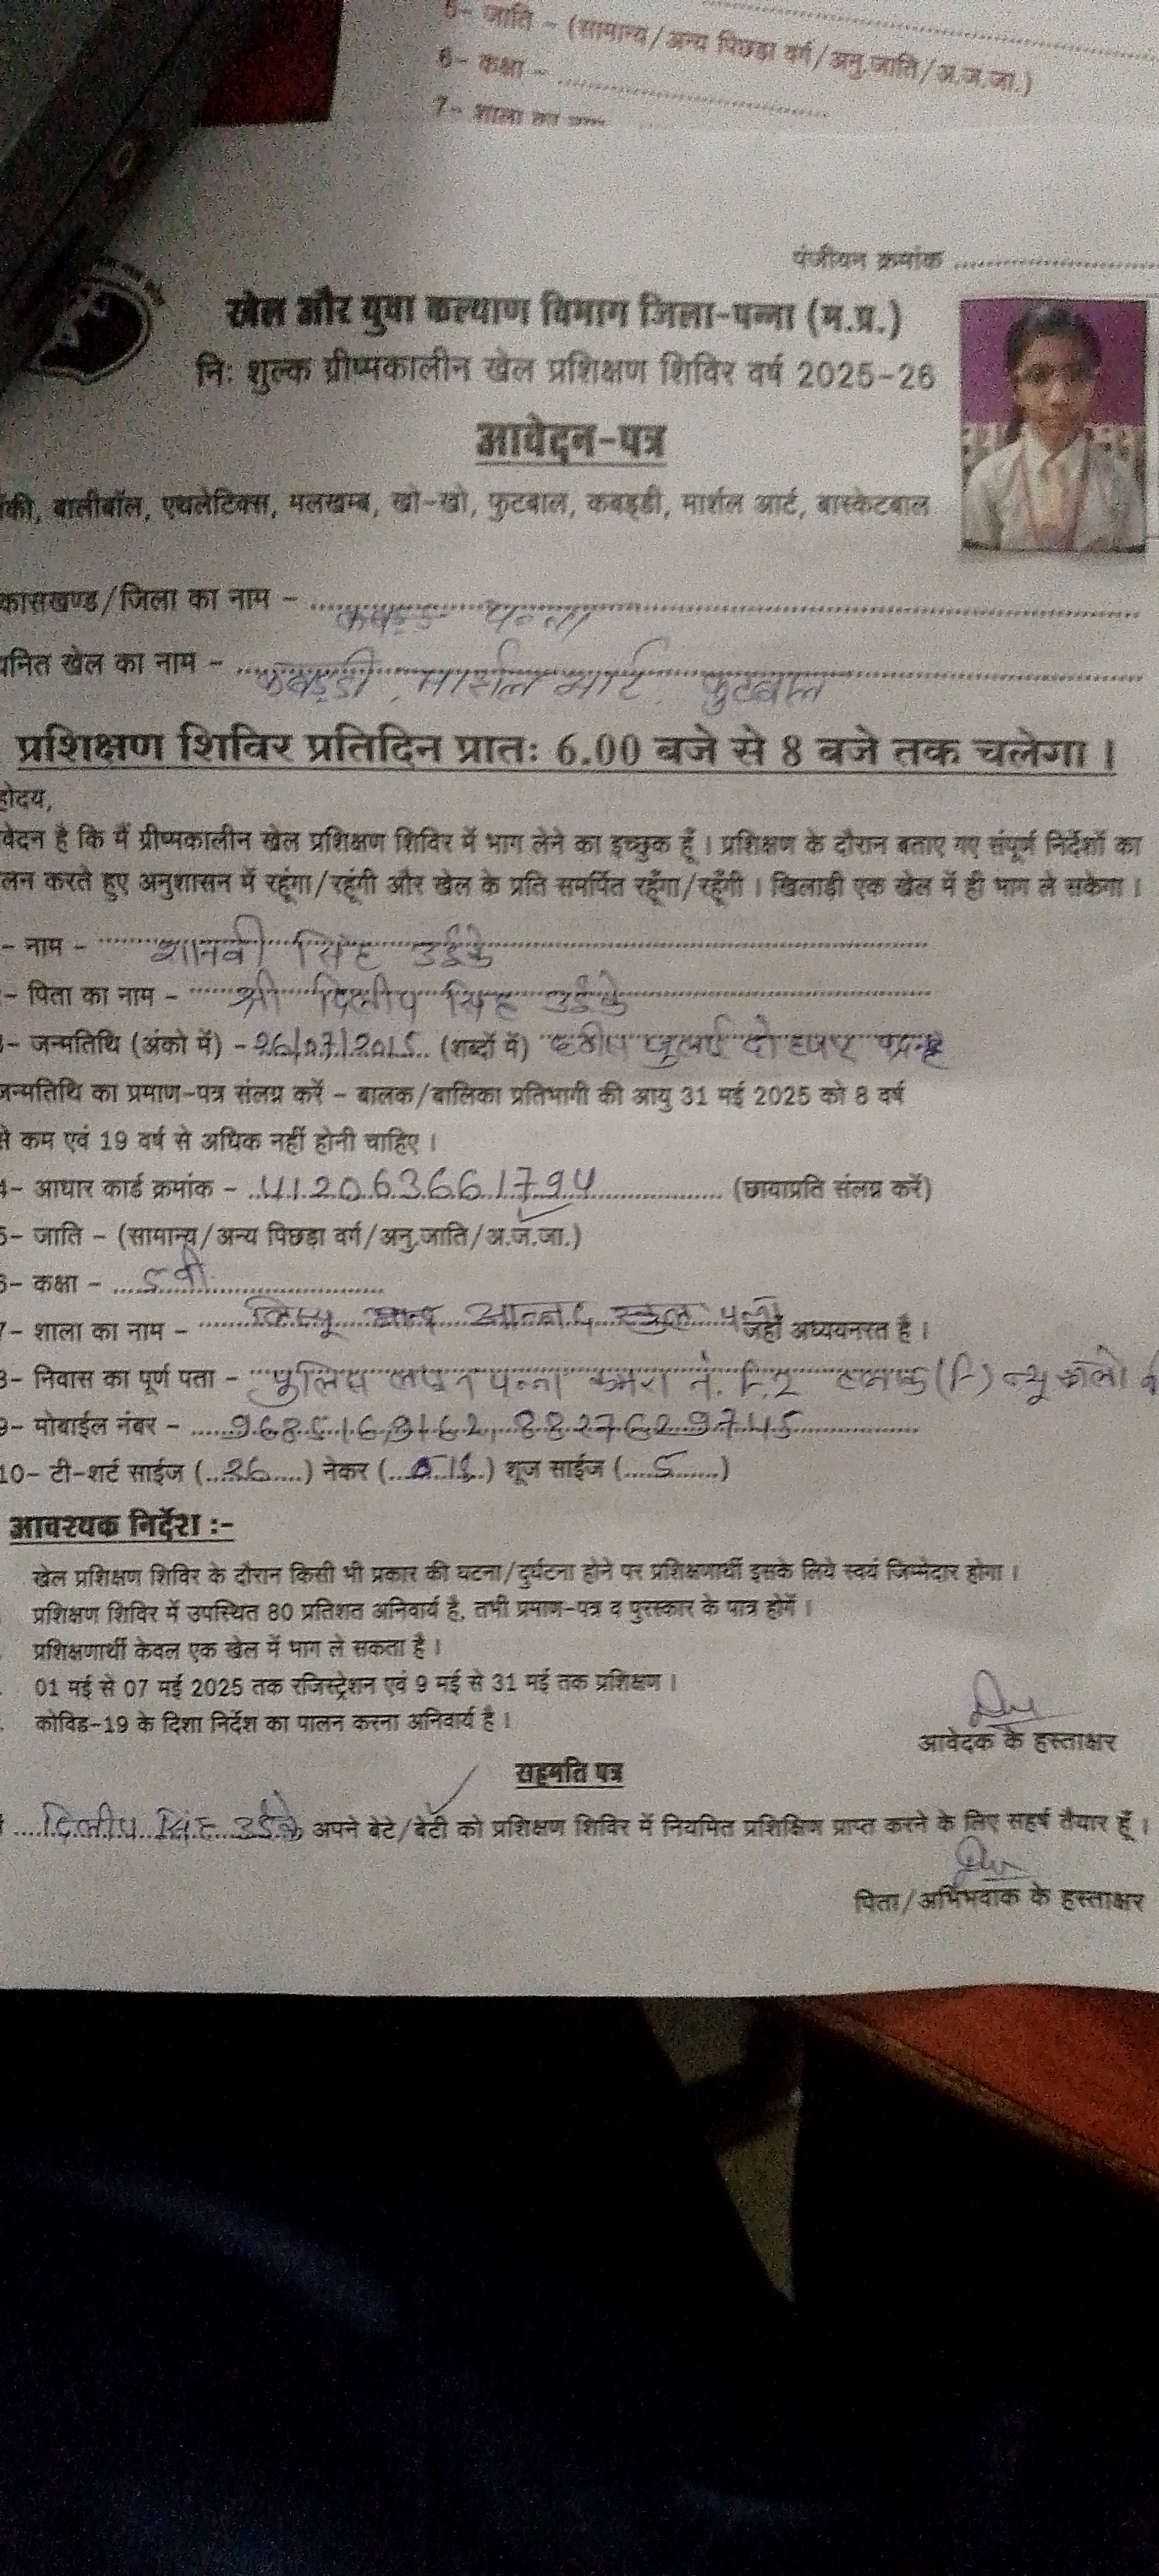 5- जाति - (सामान्य/अन्य पिछडा वर्ग/अनु.जाति/अ.ज.जा.)
6- कक्षा -
7- शाला का नाम
पंजीयन क्रमांक
खेल और युवा कल्याण विभाग जिला-पन्ना (म.प्र.)
नि: शुल्क ग्रीष्मकालीन खेल प्रशिक्षण शिविर वर्ष 2025-26
आवेदन-पत्र
की, बालीबॉल, एथलेटिक्स, मलखम्ब, खो-खो, फुटबाल, कबड्डी, मार्शल आर्ट, बास्केटबाल
कासखण्ड/जिला का नाम - पन्ना
यनित खेल का नाम - कबड्डी, मार्शल आर्ट, फुटबाल
प्रशिक्षण शिविर प्रतिदिन प्रातः 6.00 बजे से 8 बजे तक चलेगा ।
होदय,
वेदन है कि मैं ग्रीष्मकालीन खेल प्रशिक्षण शिविर में भाग लेने का इच्छुक हूँ । प्रशिक्षण के दौरान बताए गए संपूर्ण निर्देशों का
लन करते हुए अनुशासन में रहूंगा/रहूंगी और खेल के प्रति समर्पित रहूँगा/रहूँगी । खिलाड़ी एक खेल में ही भाग ले सकेगा ।
- नाम - शानवी सिंह उईके
- पिता का नाम - श्री दिलीप सिंह उईके
- जन्मतिथि (अंको में) - 26/07/2015 (शब्दों में) जुलाई दो हजार पन्द्रह
जन्मतिथि का प्रमाण-पत्र संलग्न करें - बालक/बालिका प्रतिभागी की आयु 31 मई 2025 को 8 वर्ष
से कम एवं 19 वर्ष से अधिक नहीं होनी चाहिए ।
4- आधार कार्ड क्रमांक - 412063661794 (छायाप्रति संलग्न करें)
5- जाति - (सामान्य/अन्य पिछड़ा वर्ग/अनु.जाति/अ.ज.जा.)
6- कक्षा - 5 वी
7- शाला का नाम - स्कुल पन्ना जहाँ अध्ययनरत है ।
8- निवास का पूर्ण पता - पुलिस लाईन पन्ना कमरा नं. F.2 ब्लाक (F) न्यू
9- मोबाईल नंबर - 9685169162, 8827629745
10- टी-शर्ट साईज (26) नेकर ( ) शूज साईज (5)
आवश्यक निर्देश :-
खेल प्रशिक्षण शिविर के दौरान किसी भी प्रकार की घटना/दुर्घटना होने पर प्रशिक्षणार्थी इसके लिये स्वयं जिम्मेदार होगा ।
प्रशिक्षण शिविर में उपस्थित 80 प्रतिशत अनिवार्य है, तभी प्रमाण-पत्र व पुरस्कार के पात्र होगें ।
प्रशिक्षणार्थी केवल एक खेल में भाग ले सकता है ।
01 मई से 07 मई 2025 तक रजिस्ट्रेशन एवं 9 मई से 31 मई तक प्रशिक्षण ।
कोविड-19 के दिशा निर्देश का पालन करना अनिवार्य है ।
आवेदक के हस्ताक्षर
सहमति पत्र
दिलीप सिंह उईके अपने बेटे/बेटी को प्रशिक्षण शिविर में नियमित प्रशिक्षिण प्राप्त करने के लिए सहर्ष तैयार हूँ ।
पिता/अभिभवाक के हस्ताक्षर